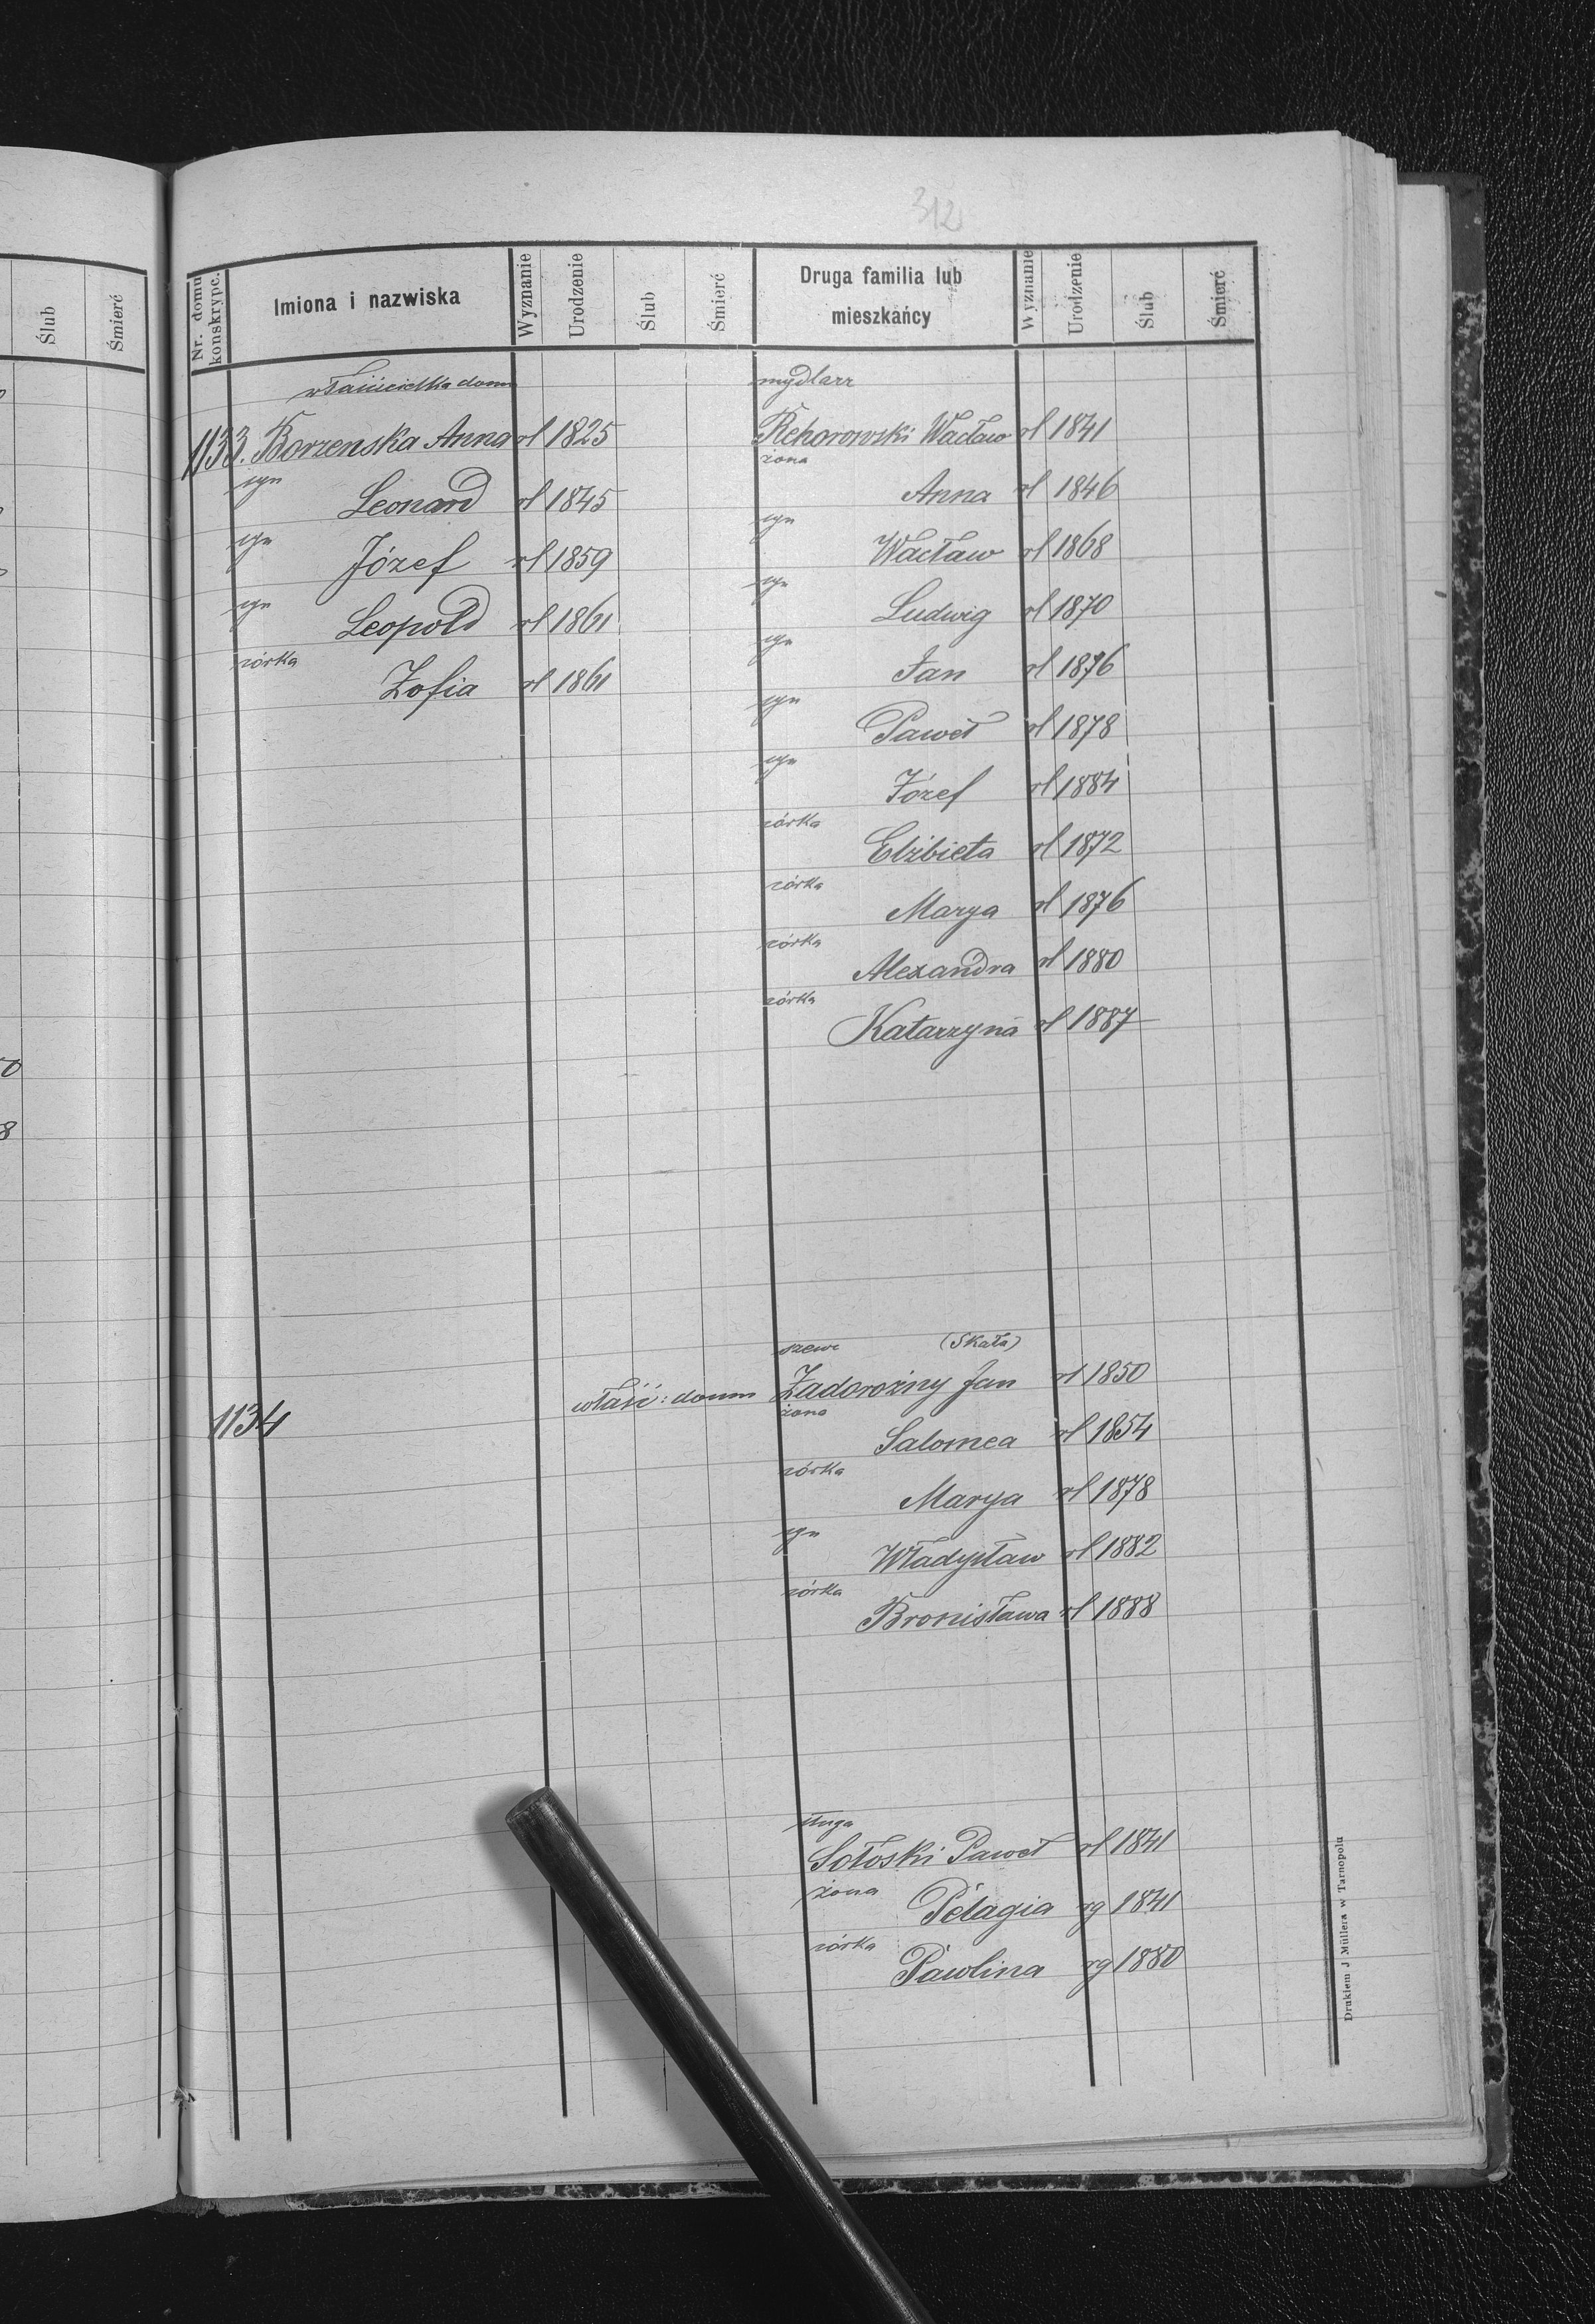 312
Ślub
Śmierć
Nr. domu konskrypc.
Imiona i nazwiska
Wyznanie
Urodzenie
Ślub
Śmierć
Druga familia lub
mieszkańcy
Wyznanie
Urodzenie
Ślub
Śmierć
właścicielka domu
1133. Borzenska Anna rl 1825
syn
Leonard rl 1845
syn
Józef rl 1859
syn
Leopold rl 1861
córka
Zofia rl 1861
mydlarz
Rehorowski Wacław rl 1841
żona
Anna rl 1846
syn
Wacław rl 1868
syn
Ludwig rl 1870
syn
Jan rl 1876
syn
Paweł rl 1878
syn
Józef rl 1884
córka
Elżbieta rl 1872
córka
Marya rl 1876
córka
Alexandra rl 1880
córka
Katarzyna rl 1887
1134
szewc (Skała)
właść: domu Zadorożny Jan rl 1850
żona
Salomea rl 1854
córka
Marya rl 1878
syn
Władysław rl 1882
córka
Bronisława rl 1888
sługa
Sołoski Paweł rl 1841
żona
Pelagia rg 1841
córka
Pawlina rg 1880
Drukiem J. Müllera w Tarnopolu
0
8